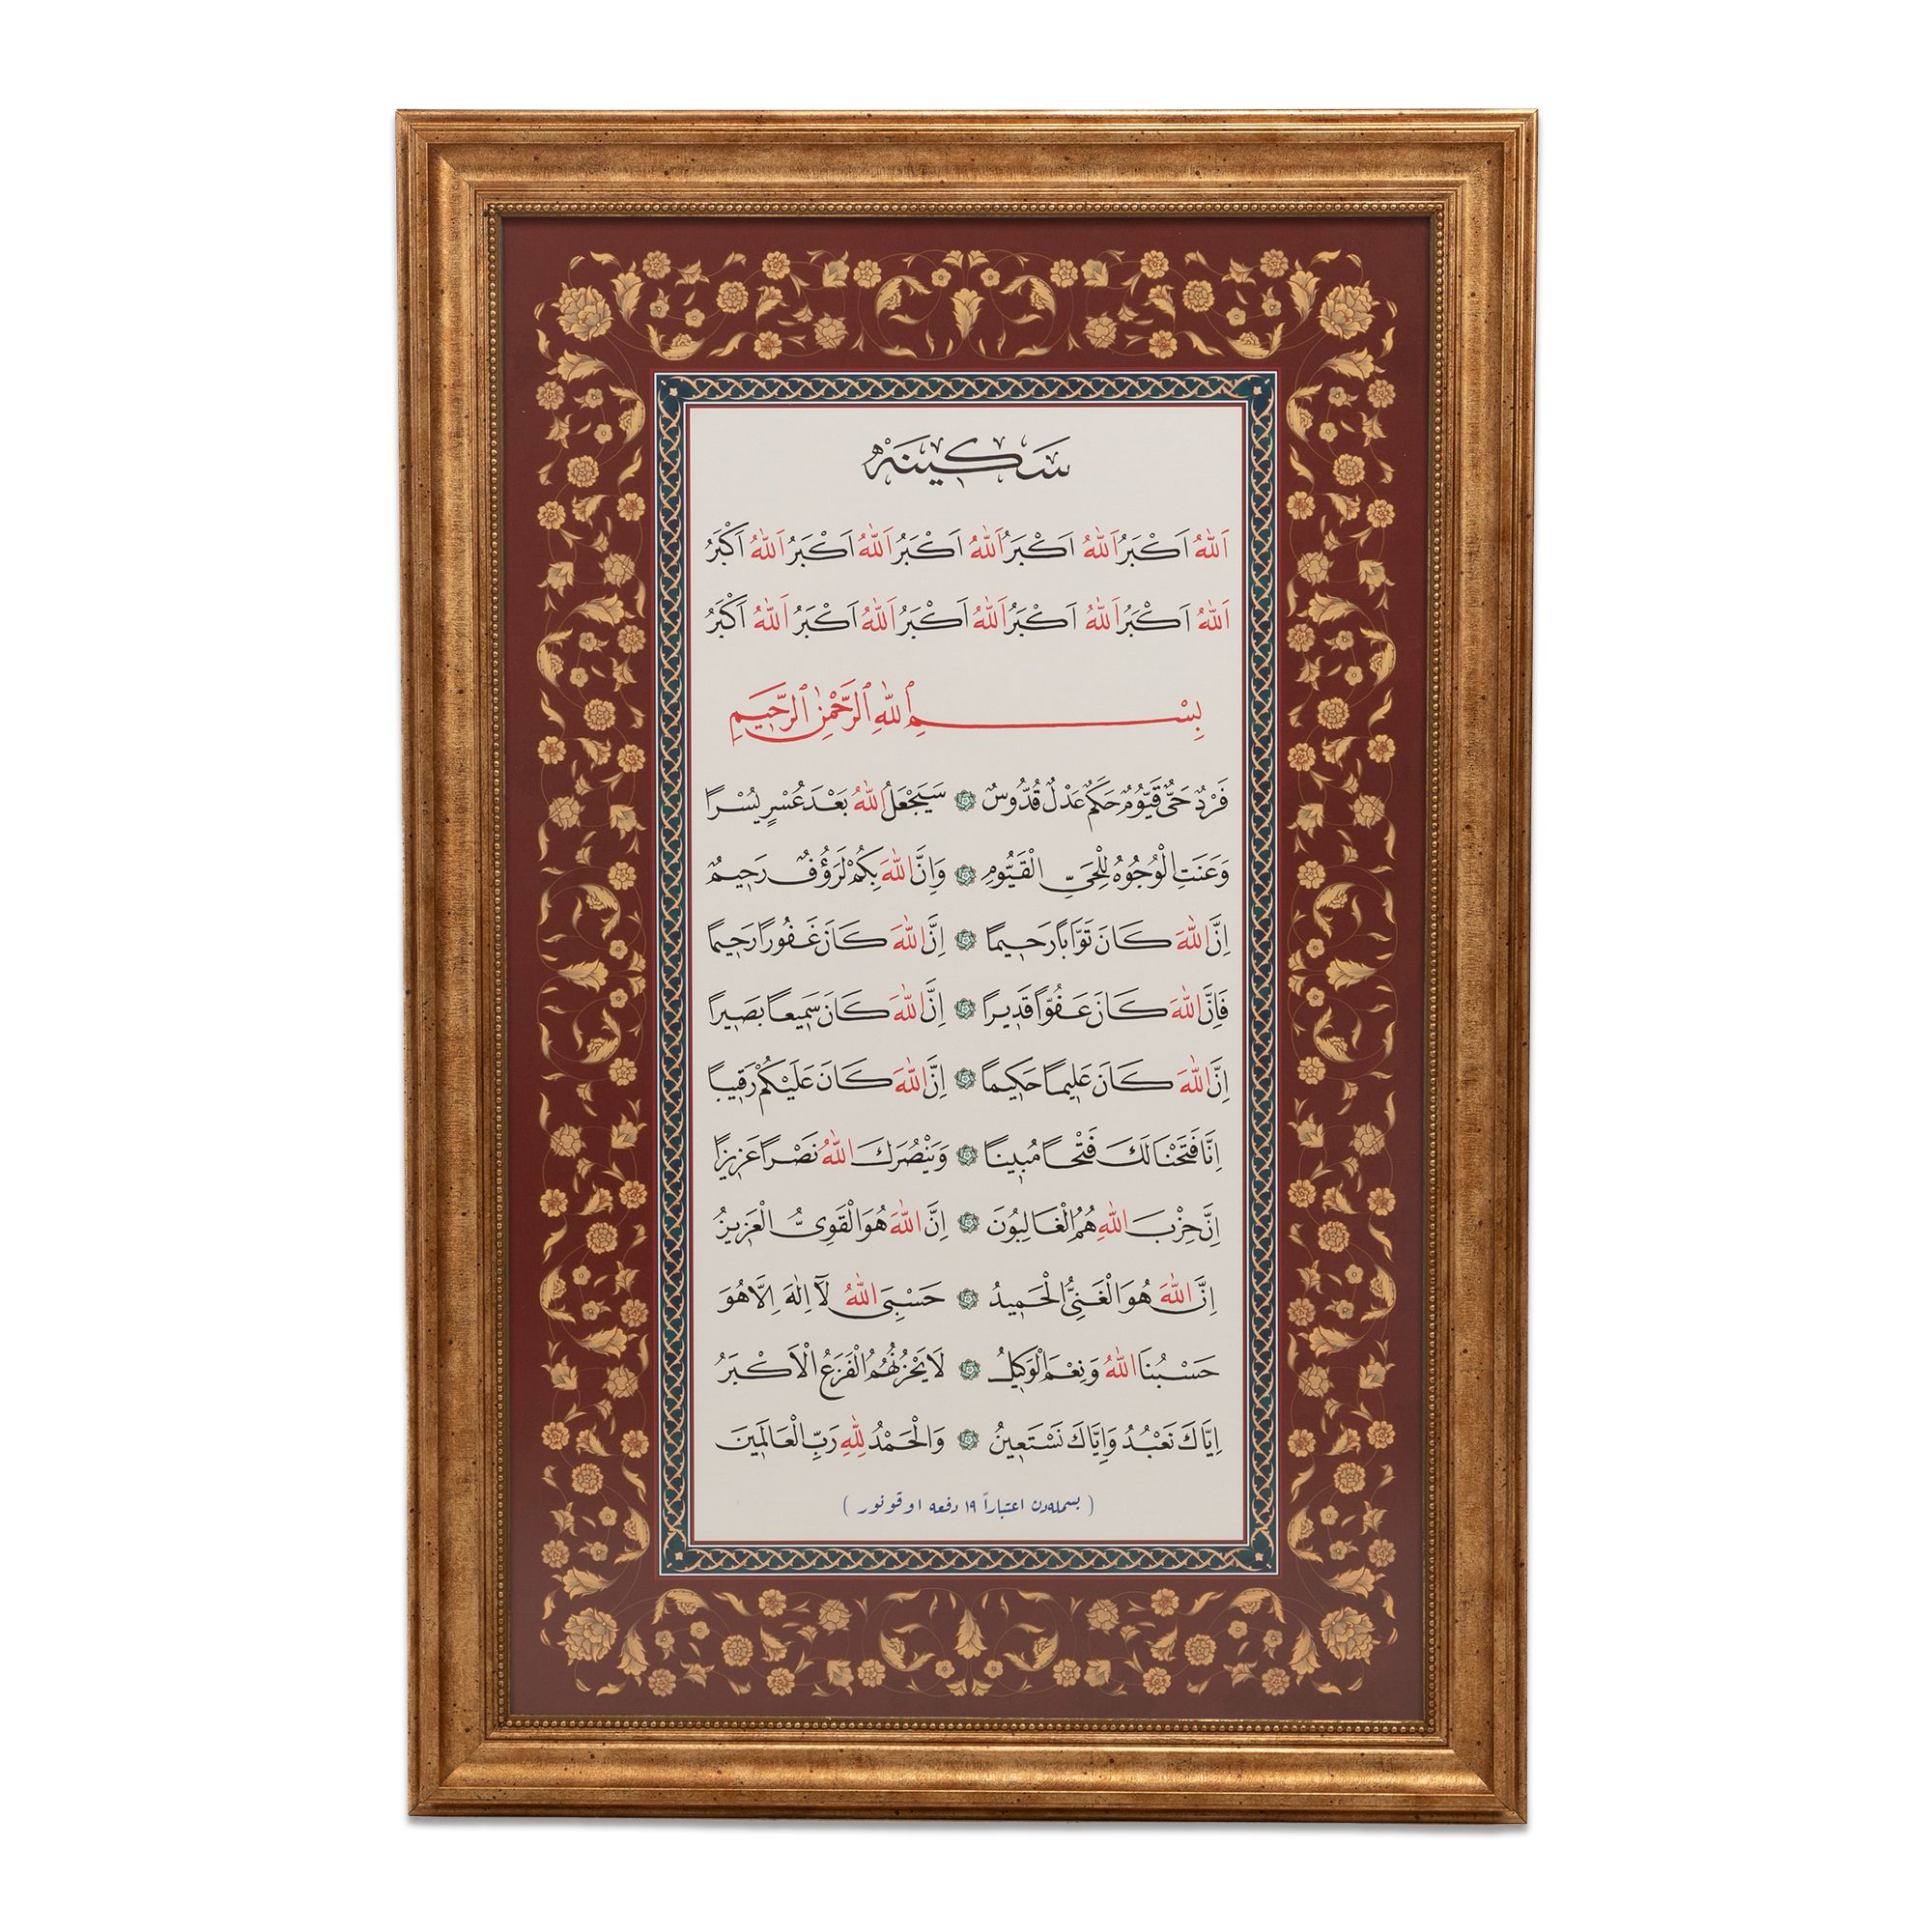 سَكِينَه
اَللّٰهُ اَكْبَرُ اَللّٰهُ اَكْبَرُ اَللّٰهُ اَكْبَرُ اَللّٰهُ اَكْبَرُ اَللّٰهُ اَكْبَرُ
اَللّٰهُ اَكْبَرُ اَللّٰهُ اَكْبَرُ اَللّٰهُ اَكْبَرُ اَللّٰهُ اَكْبَرُ اَللّٰهُ اَكْبَرُ
بِسْمِ اللّٰهِ الرَّحْمٰنِ الرَّحِيمِ
فَرْدٌ حَىٌّ قَيُّومٌ حَكَمٌ عَدْلٌ قُدُّوسٌ ۞ سَيَجْعَلُ اللّٰهُ بَعْدَ عُسْرٍ يُسْرًا
وَعَنَتِ الْوُجُوهُ لِلْحَىِّ الْقَيُّومِ ۞ وَاِنَّ اللّٰهَ بِكُمْ لَرَؤُفٌ رَحِيمٌ
اِنَّ اللّٰهَ كَانَ تَوَّابًا رَحِيمًا ۞ اِنَّ اللّٰهَ كَانَ غَفُورًا رَحِيمًا
فَاِنَّ اللّٰهَ كَانَ عَفُوًّا قَدِيرًا ۞ اِنَّ اللّٰهَ كَانَ سَمِيعًا بَصِيرًا
اِنَّ اللّٰهَ كَانَ عَلِيمًا حَكِيمًا ۞ اِنَّ اللّٰهَ كَانَ عَلَيْكُمْ رَقِيبًا
اِنَّا فَتَحْنَا لَكَ فَتْحًا مُبِينًا ۞ وَيَنْصُرَكَ اللّٰهُ نَصْرًا عَزِيزًا
اِنَّ حِزْبَ اللّٰهِ هُمُ الْغَالِبُونَ ۞ اِنَّ اللّٰهَ هُوَ الْقَوِىُّ الْعَزِيزُ
اِنَّ اللّٰهَ هُوَ الْغَنِىُّ الْحَمِيدُ ۞ حَسْبِىَ اللّٰهُ لَٓا اِلٰهَ اِلَّا هُوَ
حَسْبُنَا اللّٰهُ وَنِعْمَ الْوَكِيلُ ۞ لَا يَحْزُنُهُمُ الْفَزَعُ الْاَكْبَرُ
اِيَّاكَ نَعْبُدُ وَاِيَّاكَ نَسْتَعِينُ ۞ وَالْحَمْدُ لِلّٰهِ رَبِّ الْعَالَمِينَ
( بسمله‌دن اعتباراً ١٩ دفعه اوقونور )